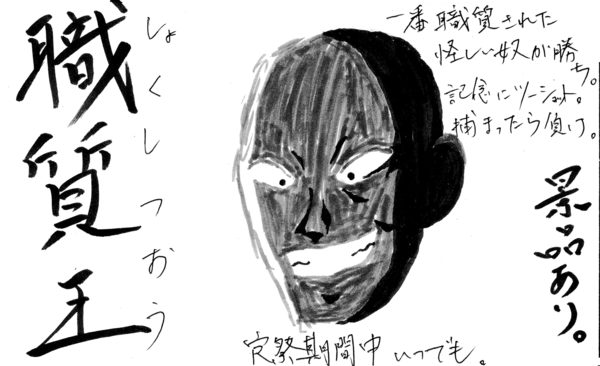 職質王
しょくしつおう
一番職質された
怪しい奴が勝
ち。
記念にツーショット。
捕まったら負け。
景品あり。
定祭期間中いつでも。